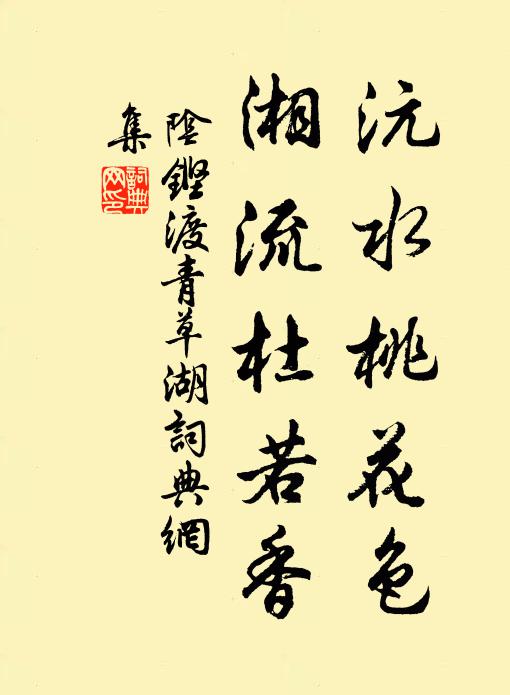 沅水桃花色
湘流杜若香
陰鏗渡青草湖詞典網
集
詞典
网印